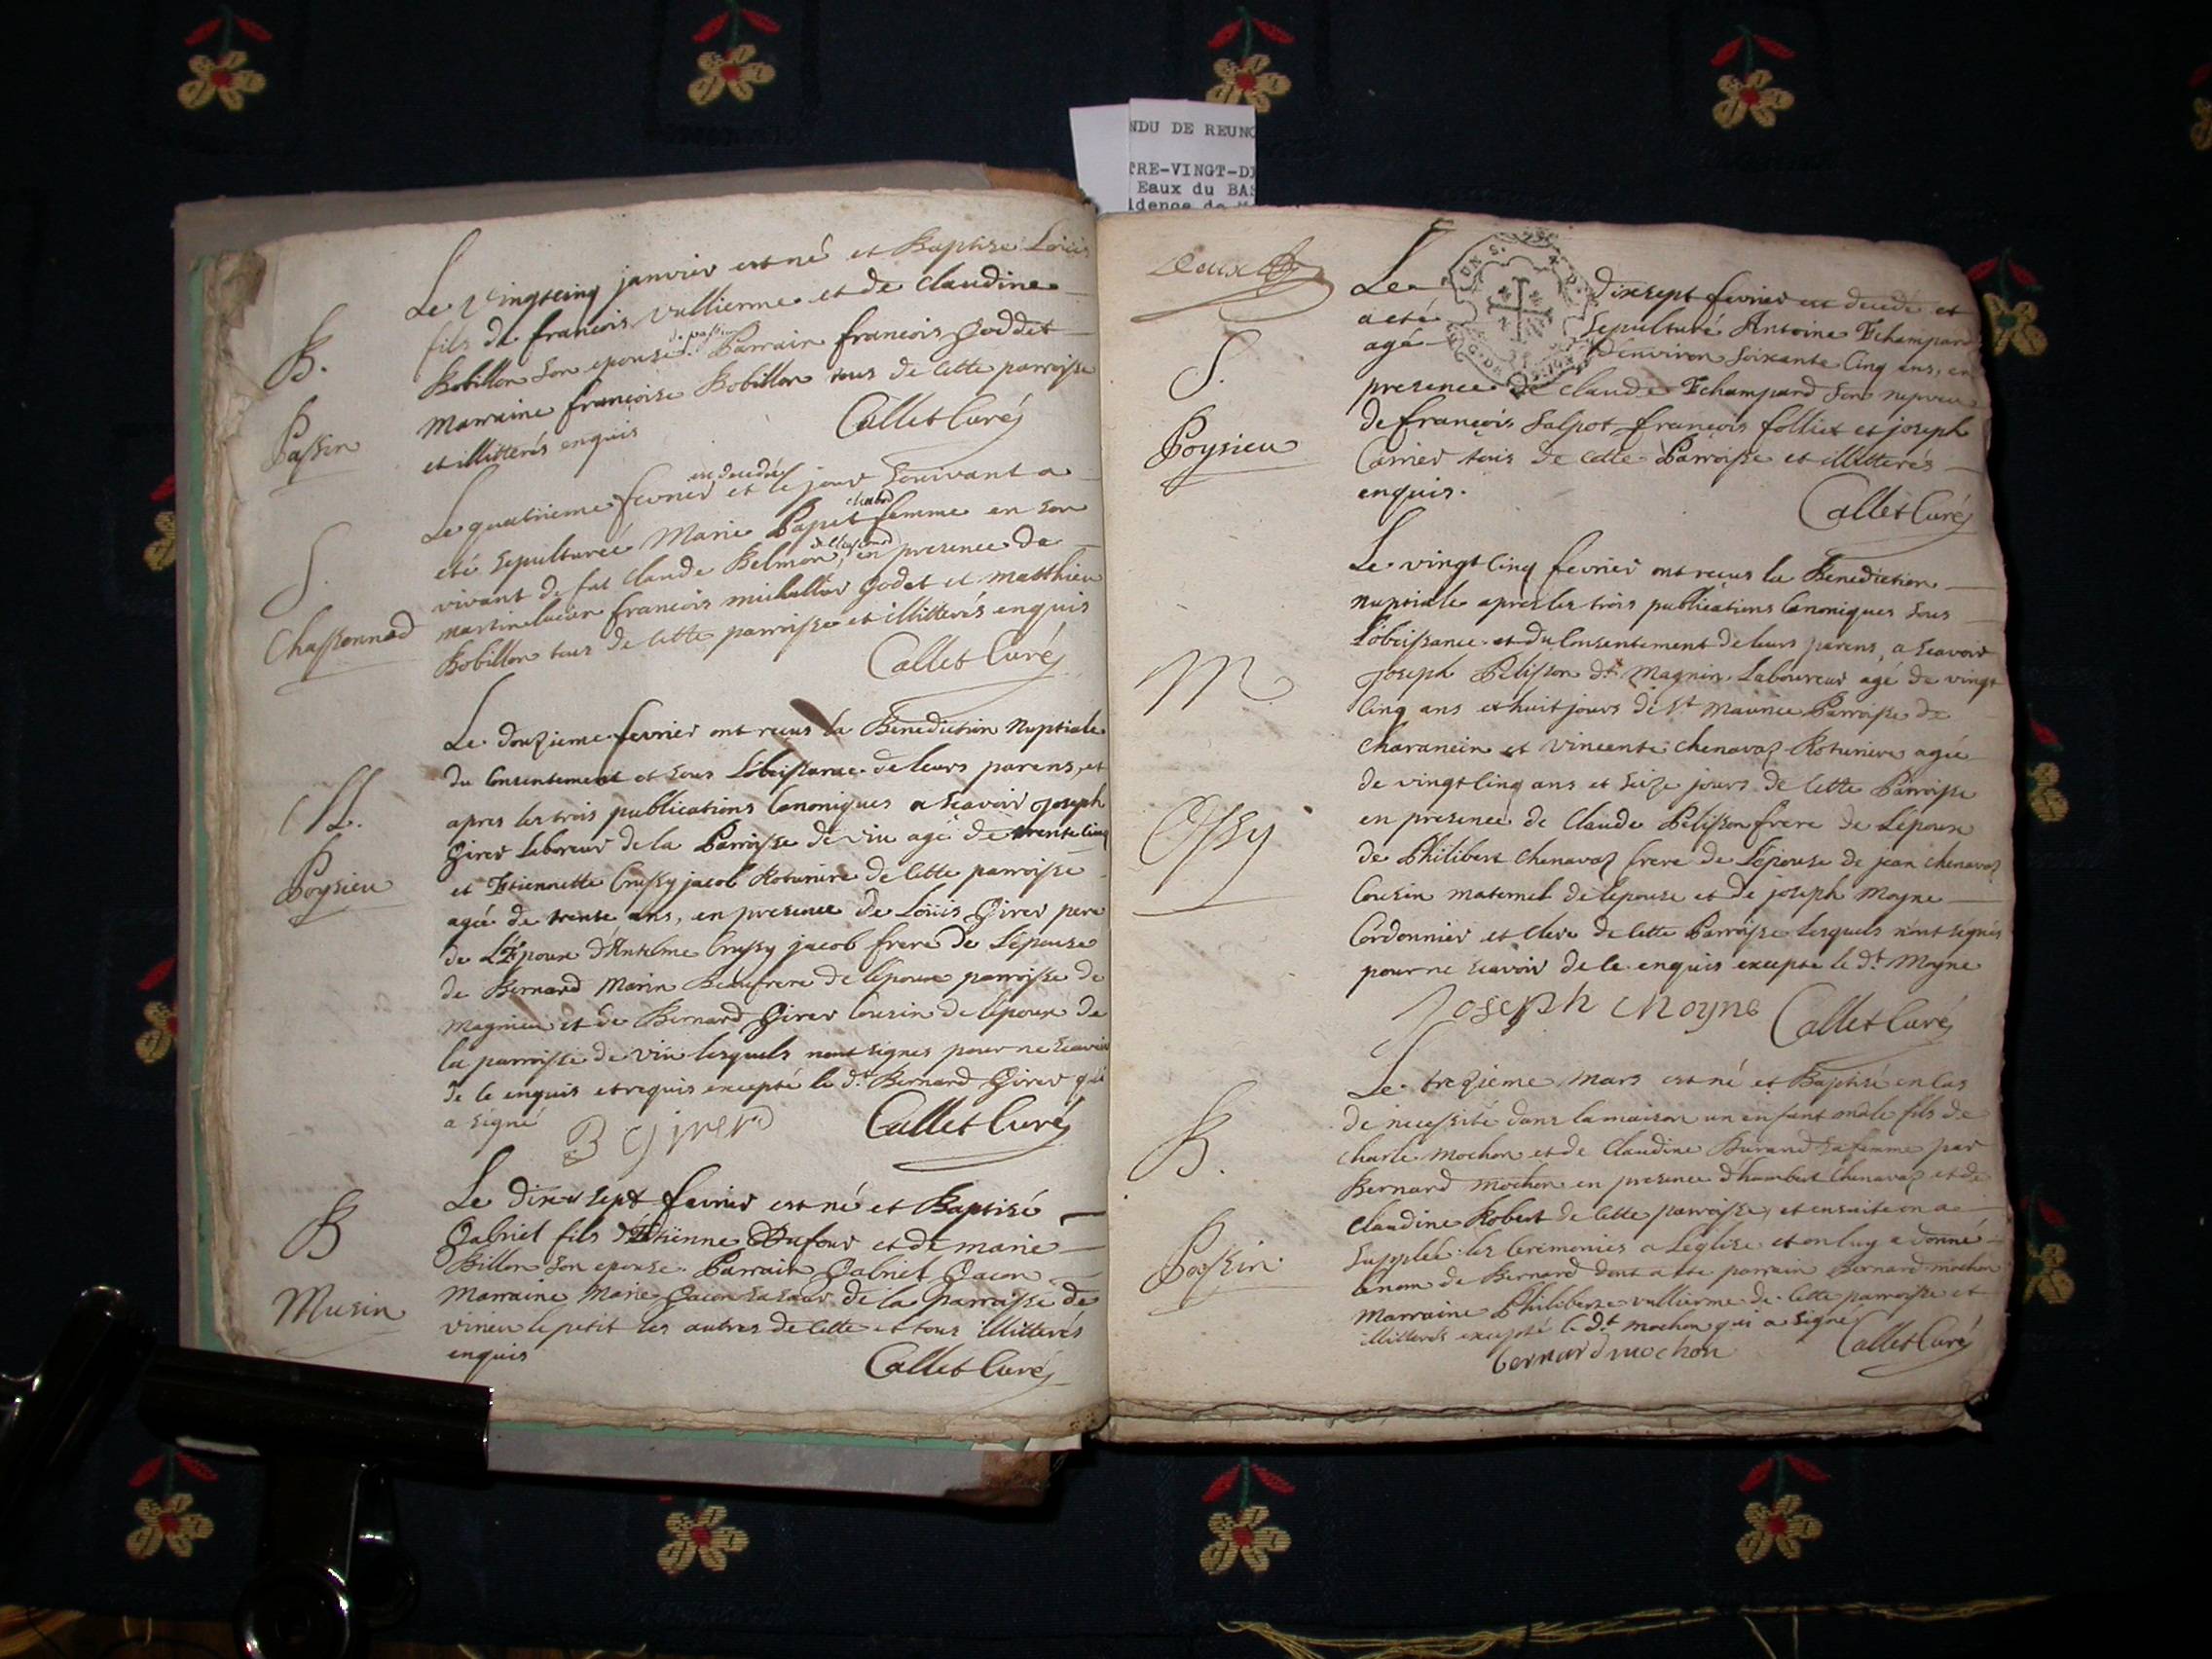 NDU DE REUNO
TRE-VINGT-DI
Eaux du BAS
Le vingtcinq janvier est né et Baptisé Loüis
fils de francois vullierme et de claudine
B.
Robillon son epouse de passin Parrain francois Goddet
Marraine francoise Robillon tous de cette parroisse
Passin
et illitterés enquis
Callet Curé
Le quatrieme fevrier est decedée et le jour suivant a
eté sepulturée Marie Papet chabod femme en son
S.
vivant de fut claude Belmon, en presence de
Chassonnod
martin lucien francois michallet Godet et matthieu
Robillon tous de cette parroisse et illitterés enquis
Callet Curé
Le douzieme fevrier ont reçus la Benediction Nuptiale
du Consentement et sous L'obeissance de leurs parens, et
M.
apres les trois publications Canoniques a scavoir joseph
Girer Laboreur de la Parroisse de vin agé de trente cinq
Poysieu
et Etiennette Crussy jacob Roturiere de cette parroisse
agée de trente ans, en presence de Loüis Girer pere
de L'Epoux d'Antelme Crussy jacob frere de L'épouse
de Bernard Marin Beaufrere de l'epoux parroisse de
Magnieu et de Bernard Girer Cousin de lépoux de
la parroisse de vin lesquels n'ont signés pour ne scavoir
de le enquis et requis excepté le d.t Bernard Girer qui
a signé
B Girer
Callet Curé
Le dix et sept fevrier est né et Baptisé
B
Gabriel fils d'Etienne Dufour et de marie
Billon son epouse. Parrain Gabriel Gacon
Musin
Marraine Marie Gacon sa sœur de la parroisse de
vinieu le petit les autres de cette et tous illitterés
enquis
Callet Curé
Deux
Le dixsept fevrier est decedé et
a eté sepulturé Antoine Echampard
agé d'environ soixante cinq ans, en
S.
presence de claude Echampard son nepveu
de francois Salpot francois folliet et joseph
Poysieu
Carrier tous de cette Parroisse et illitterés
enquis.
Callet Curé
Le vingt cinq fevrier ont reçus la Benediction
Nuptiale apres les trois publications Canoniques sous
L'obeissance et du Consentement de leurs parens, a scavoir
M
joseph Pelisson d.t Magnin Laboureur agé de vingt
cinq ans et huit jours de S.t Maurice Parroisse de
charancin et vincente chenavaz Roturiere agée
de vingt cinq ans et seize jours de cette Parroisse
Ossy
en presence de Claude Pelisson frere de L'epoux
de Philibert chenavaz frere de L'épouse de jean chenavaz
Cousin maternel de l'epouse et de joseph Moyne
Cordonnier et clerc de cette Parroisse lesquels n'ont signés
pour ne scavoir de le enquis excepté le d.t Moyne
Joseph Moyne Callet Curé
Le trezieme Mars est né et Baptisé en Cas
de necessité dans la maison un enfant male fils de
B.
charle mochon et de Claudine Burand sa femme par
Bernard mochon en presence d'humbert chenavaz et de
Claudine Robert de cette parroisse, et ensuite on a
Passin
supplée les Ceremonies a L'eglise et on luy a donné
le nom de Bernard dont a eté parrain Bernard mochon
Marraine Philiberte vullierme de cette parroisse et
illitterés excepté le d.t mochon qui a signé
bernard mochon
Callet Curé